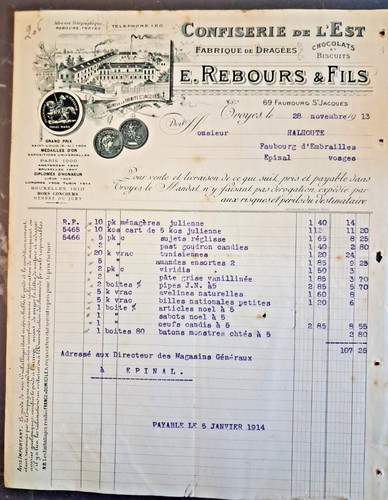 Adresse Télégraphique
REBOURS, TROYES
TÉLÉPHONE 1.50
CONFISERIE DE L'EST
FABRIQUE DE DRAGÉES
CHOCOLATS
ET
BISCUITS
E. REBOURS & FILS
69 FAUBOURG ST JACQUES
Troyes, le 28 novembre 1913
Doit Monsieur HALHOUTE
Faubourg d'Embrailles
Epinal Vosges
GRAND PRIX
MÉDAILLES D'OR
EXPOSITIONS UNIVERSELLES
PARIS 1900
DIPLÔMES D'HONNEUR
BRUXELLES 1910
HORS CONCOURS
MEMBRE DU JURY
Pour vente et livraison de ce qui suit, prix et payable dans
Troyes le Mandat n'y faisant pas dérogation, expédié par
aux risques et périls du destinataire
R.F. 10 pk ménagères julienne 1 40 14
5465 10 kos cart de 5 kos julienne 112 11 20
5466 5 pk c sujets réglisse 1 65 8 25
past goudron candies 1 40 2 80
20 k vrac tunisiennes 1 20 24
5 " amandes ensortes 2 1 85 9 25
2 pk c viridis 1 50 3
pâte grise vanillinée 1 85 3 70
2 boites % pipes J.N. à5 1 85 3 70
5 k vrac avelines naturelles 1 60 8
5 k vrac billes nationales petites 1 20 6
1 boite % articles noel à 5
1 " sabots noel à 5
1 " oeufs candis à 5 2 85 8 55
1 boites 80 batons monstres chtés à 5 3 80
107 25
Adressé aux Directeur des Magasins Généraux
à EPINAL.
PAYABLE LE 5 JANVIER 1914